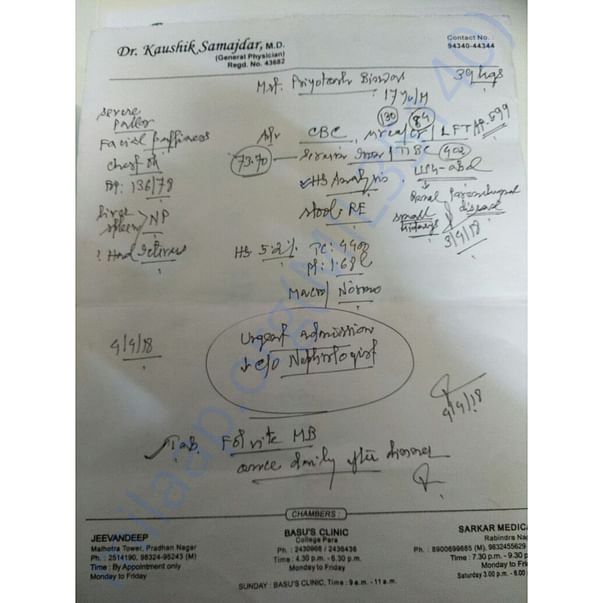 Dr. Kaushik Samajdar, M.D.
(General Physician)
Regd. No. 43682
Contact No.:
94340-44344
39 kgs
17 yr/M
severe
Pallor
Facial puffiness
Chest
BP: 136/78
liver
spleen NP
Adv CBC, urea 130 / Cr 84 / LFT
73.70 serum Iron / TIBC 402
USG-abd
Renal Parenchymal
disease
small
kidneys
3/4/18
Stool RE
Hb 5.2% TC: 4400
Pl: 1.68 L
Macro / Normo
4/4/18
Urgent admission
c/o Nephrologist
4/4/18
Tab. Folvite MB
once daily after dinner
CHAMBERS :
JEEVANDEEP
Malhotra Tower, Pradhan Nagar
Ph. : 2514190, 98324-95243 (M)
Time : By Appointment only
Monday to Friday
BASU'S CLINIC
College Para
Ph. : 2430908 / 2436436
Time : 4.30 p.m. - 6.30 p.m.
Monday to Friday
SARKAR MEDICA
Rabindra Nag
Ph. : 8900699685 (M), 9832455629
Time : 7.30 p.m. - 9.30 p
Monday to Frida
Saturday 3.00 p.m. - 6.00
SUNDAY : BASU'S CLINIC, Time : 9 a.m. - 11 a.m.